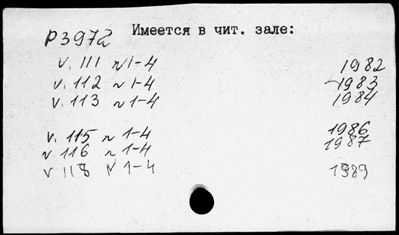 Р3972 Имеется в чит. зале:
v. 111 n 1-4 1982
v. 112 n 1-4 1983
v. 113 n 1-4 1984
v. 115 n 1-4 1986
v. 116 n 1-4 1987
v 118 N 1-4 1989